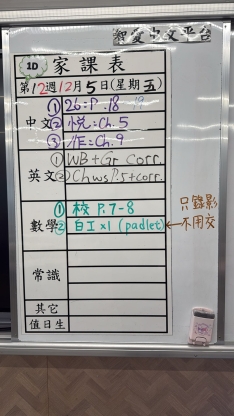 智愛中文平台
1D 家課表
第12週12月5日(星期五)
中文
① 26: P.18 19
② 悅: Ch.5
③ 作: Ch.9
英文
① WB + Gr corr.
② Ch ws P.5 + corr.
數學
① 校 P.7-8
② 自工 x1 (padlet)
← 只錄影
不用交
常識
其它
值日生